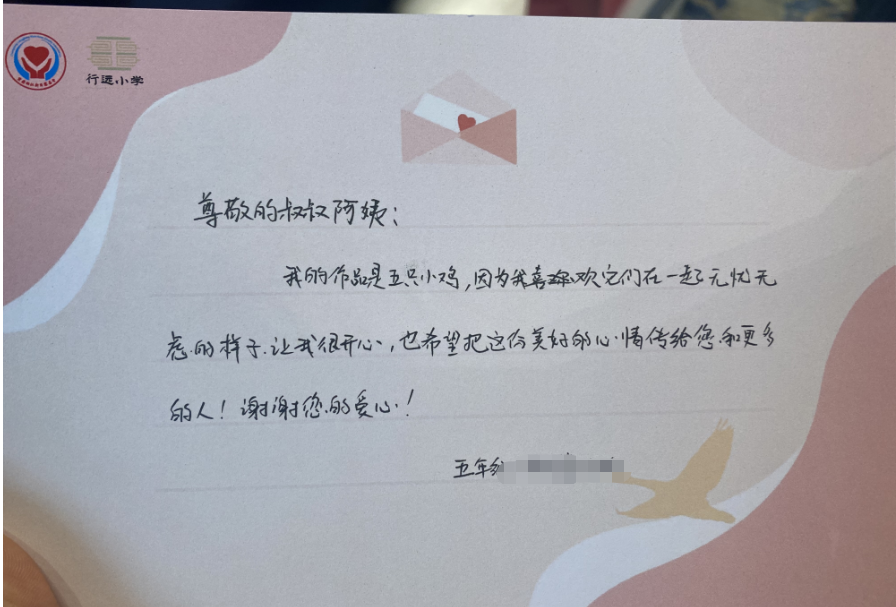 行远小学
尊敬的叔叔阿姨：
我的作品是五只小鸡，因为我喜欢它们在一起无忧无
虑的样子.让我很开心，也希望把这份美好的心情传给您和更多
的人！谢谢您的爱心！
五年级